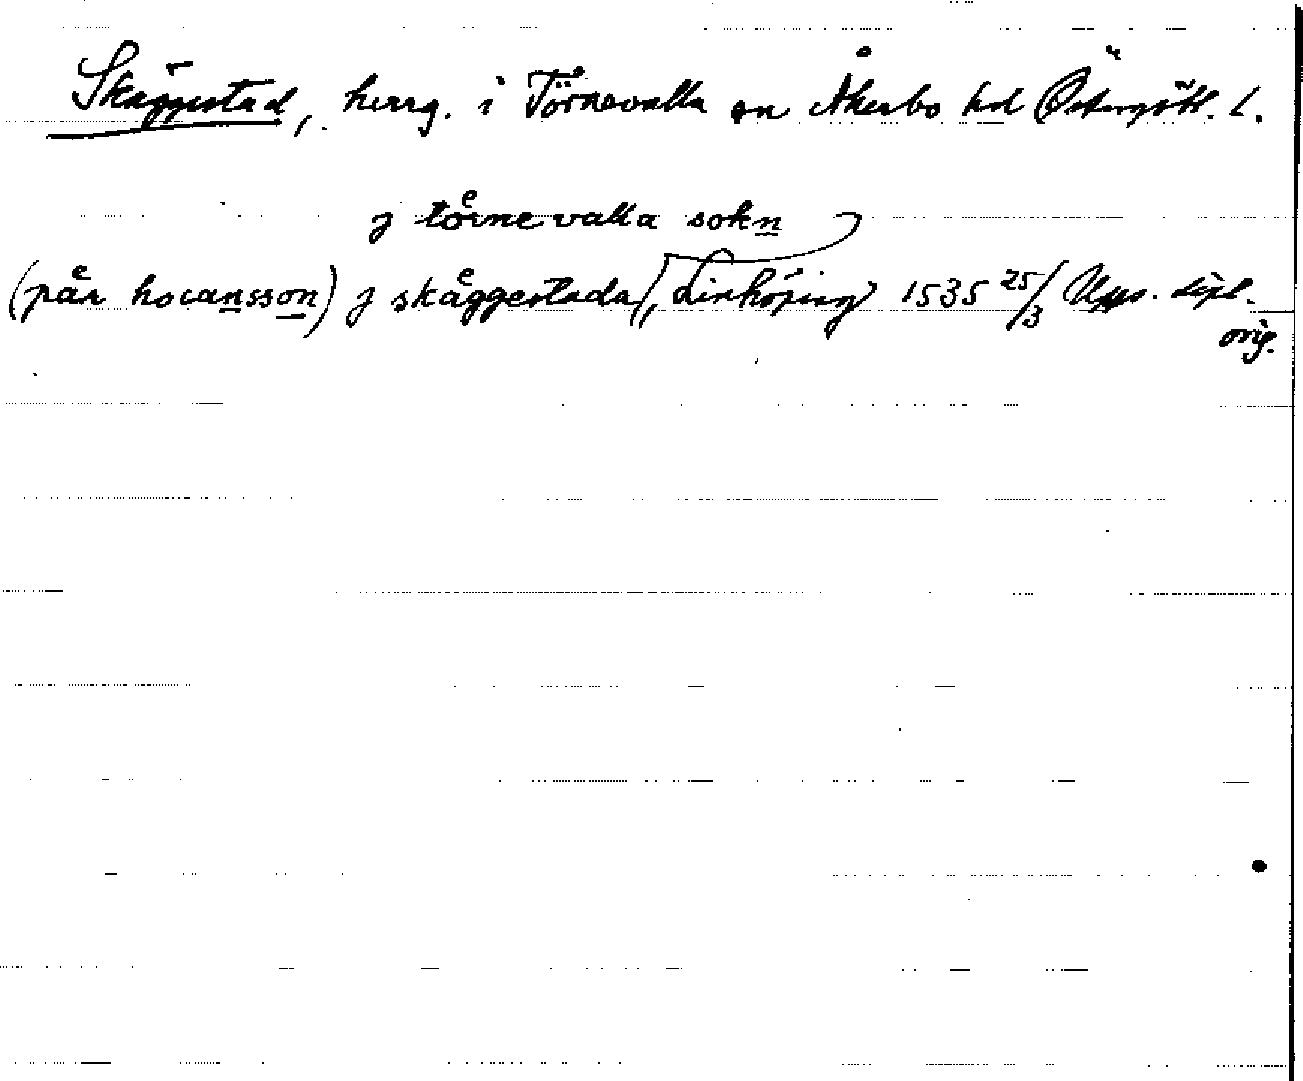 Skäggestad, herrg. i Törnevalla sn Åkerbo hd Östergötl. l.
j toͤrne valla sokn
(paͤr hocansson) j skaͤggestada /, Linköping 1535 25/3 Upps. dipl.
orig.